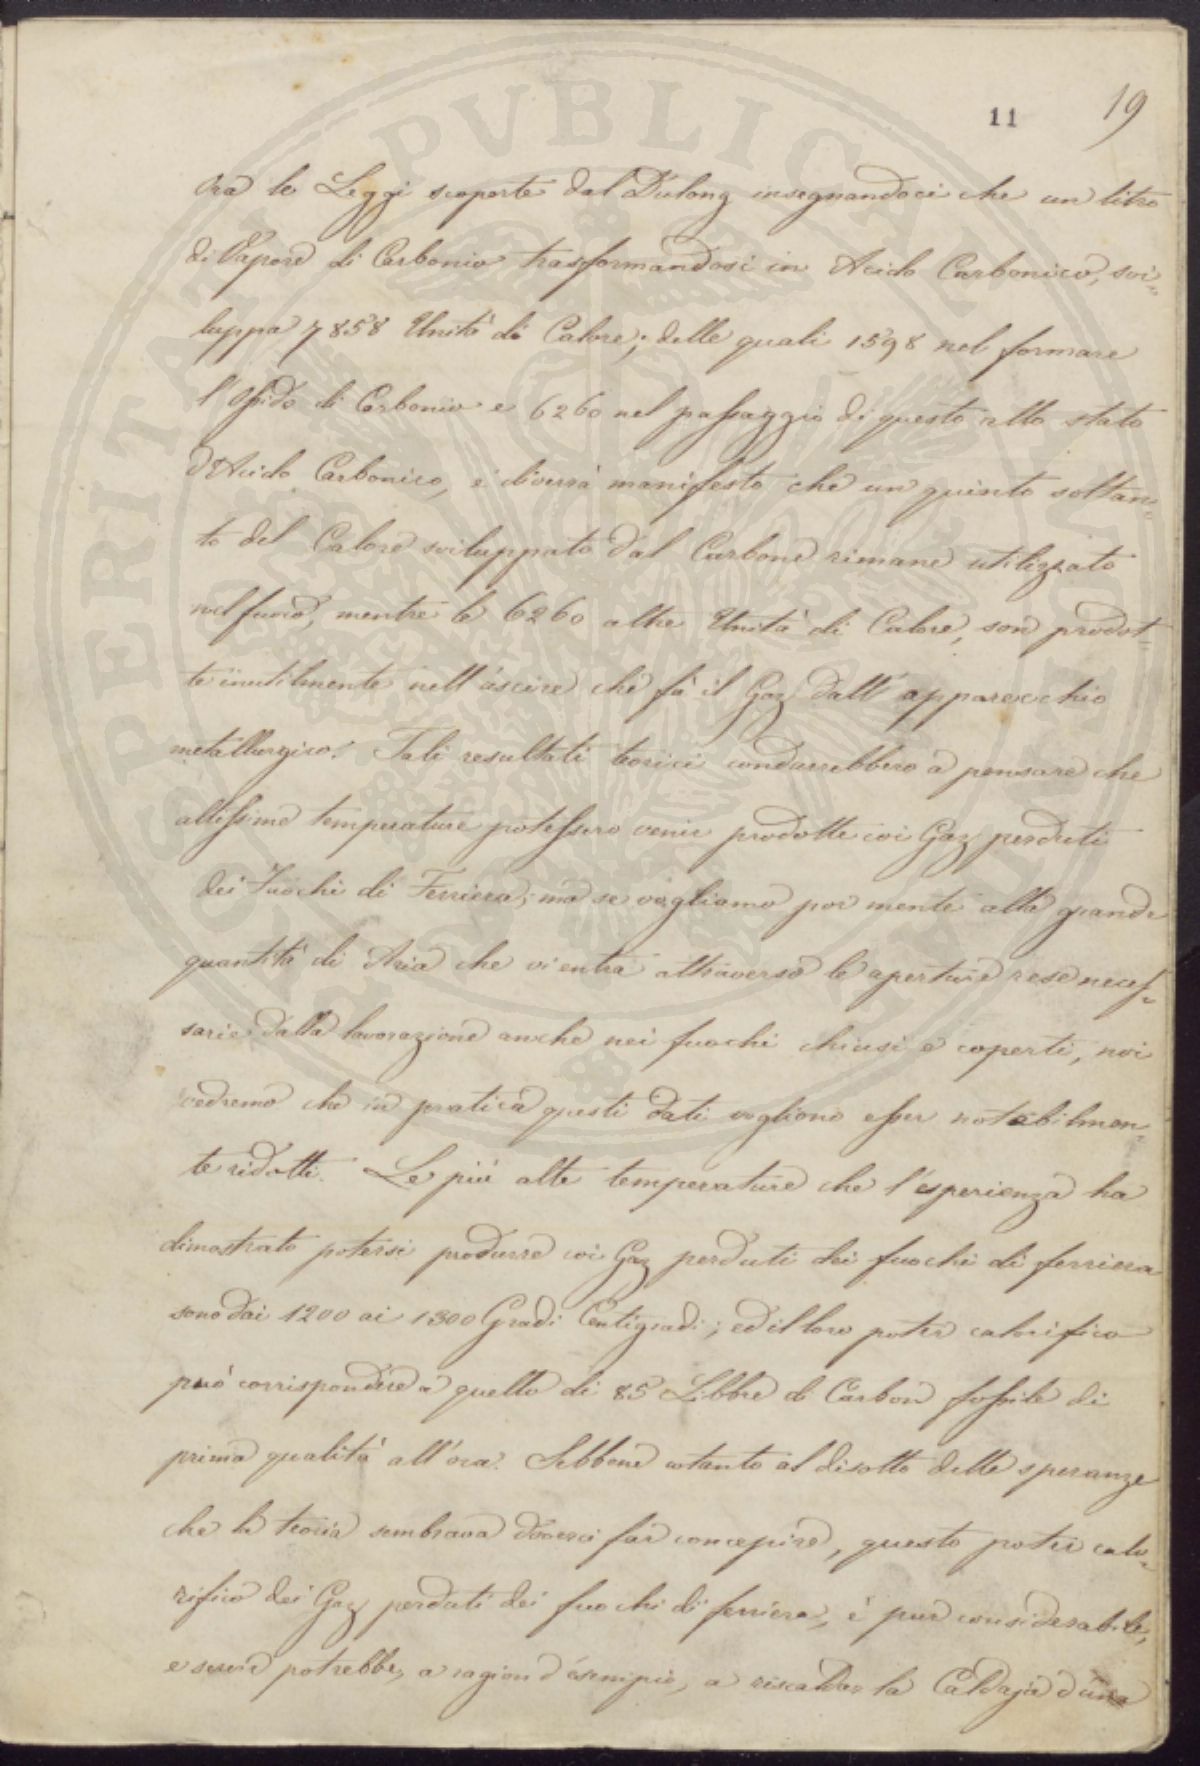 11 19
Ora le Leggi scoperte dal Dulong insegnandoci che un litro
di Vapore di Carbonio trasformandosi in Acido Carbonico, svi-
luppa 7858 Unità di Calore; delle quali 1598 nel formare
l'Ossido di Carbonio e 6260 nel passaggio di questo allo stato
d'Acido Carbonico, ci diverrà manifesto che un quinto soltan-
to del Calore sviluppato dal Carbone rimane utilizzato
nel fuoco, mentre le 6260 altre Unità di Calore, son prodot-
te inutilmente nell'uscire che fà il Gaz dall'apparecchio
metallurgico. Tali resultati teorici condurrebbero a pensare che
altissime temperature potessero venir prodotte coi Gaz perduti
dei Fuochi di Ferriera; ma se vogliamo por mente alla grande
quantità di Aria che vi entra attraverso le aperture rese neces-
sarie dalla lavorazione anche nei fuochi chiusi e coperti, noi
vedremo che in pratica questi dati vogliono esser notabilmen-
te ridotti. Le più alte temperature che l'esperienza ha
dimostrato potersi produrre coi Gaz perduti dei fuochi di ferriera
sono dai 1200 ai 1300 Gradi Centigradi; ed il loro poter calorifico
può corrispondere a quello di 85 Libbre di Carbon fossile di
prima qualità all'ora. Sebbene cotanto al disotto delle speranze
che la teoria sembrava doverci far concepire, questo poter calo-
rifico dei Gaz perduti dei fuochi di ferriera, è pur considerabile,
e servir potrebbe, a ragion d'esempio, a riscaldar la Caldaja d'una